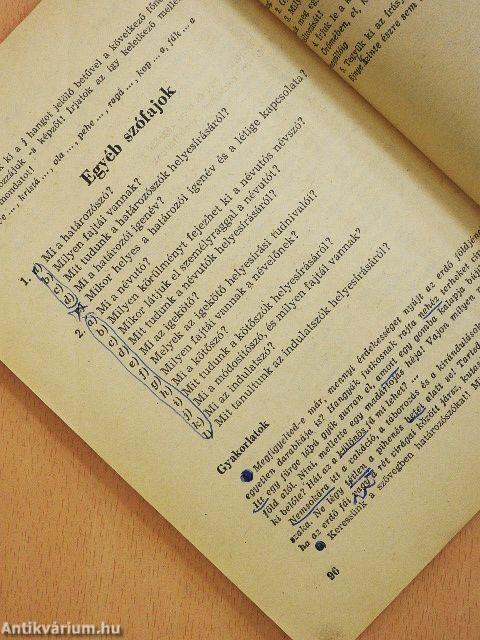 ki a j hangot jelölő betűvel a következő
képzőt! Írjatok az így keletkező
mondatot!
kristá ..., ola ..., pehe ..., ragá ..., kop ... a, jük ... a
Egyéb szófajok
1. a) Mi a határozószó?
b) Milyen fajtái vannak?
c) Mit tudunk a határozószók helyesírásáról?
d) Mi a határozói igenév?
e) Mikor helyes a határozói igenév és a létige kapcsolata?
2. a) Mi a névutó?
b) Milyen körülményt fejezhet ki a névutós névszó?
c) Mikor látjuk el személyraggal a névutót?
d) Mit tudunk a névutók helyesírásáról?
e) Mi az igekötő?
f) Melyek az igekötő helyesírási tudnivalói?
g) Milyen fajtái vannak a névelőnek?
h) Mi a kötőszó?
i) Mit tudunk a kötőszók helyesírásáról?
j) Mi a módosítószó, és milyen fajtái vannak?
k) Mi az indulatszó?
l) Mit tanultunk az indulatszók helyesírásáról?
Gyakorlatok
Megfigyelted-e már, mennyi érdekességet nyújt az erdő földjén
egyetlen darabkája is? Hangyák futkosnak rajta nehéz terheket
Itt egy fürge lábú gyík surran el, amott egy gomba kalapja
föld alól. Nini, mellette egy madártojás héja! Vajon milyen
ki belőle? Hát az a különös fa mi lehet? ...
Nemsokára itt a vakáció, a táborozás és a kirándulások
szaka. Ne légy tétlen a pihenés hetei alatt se!
ha az erdő fái vagy a rét virágai között jársz,
Keressünk a szövegben határozószókat!
96
Antikvárium.hu